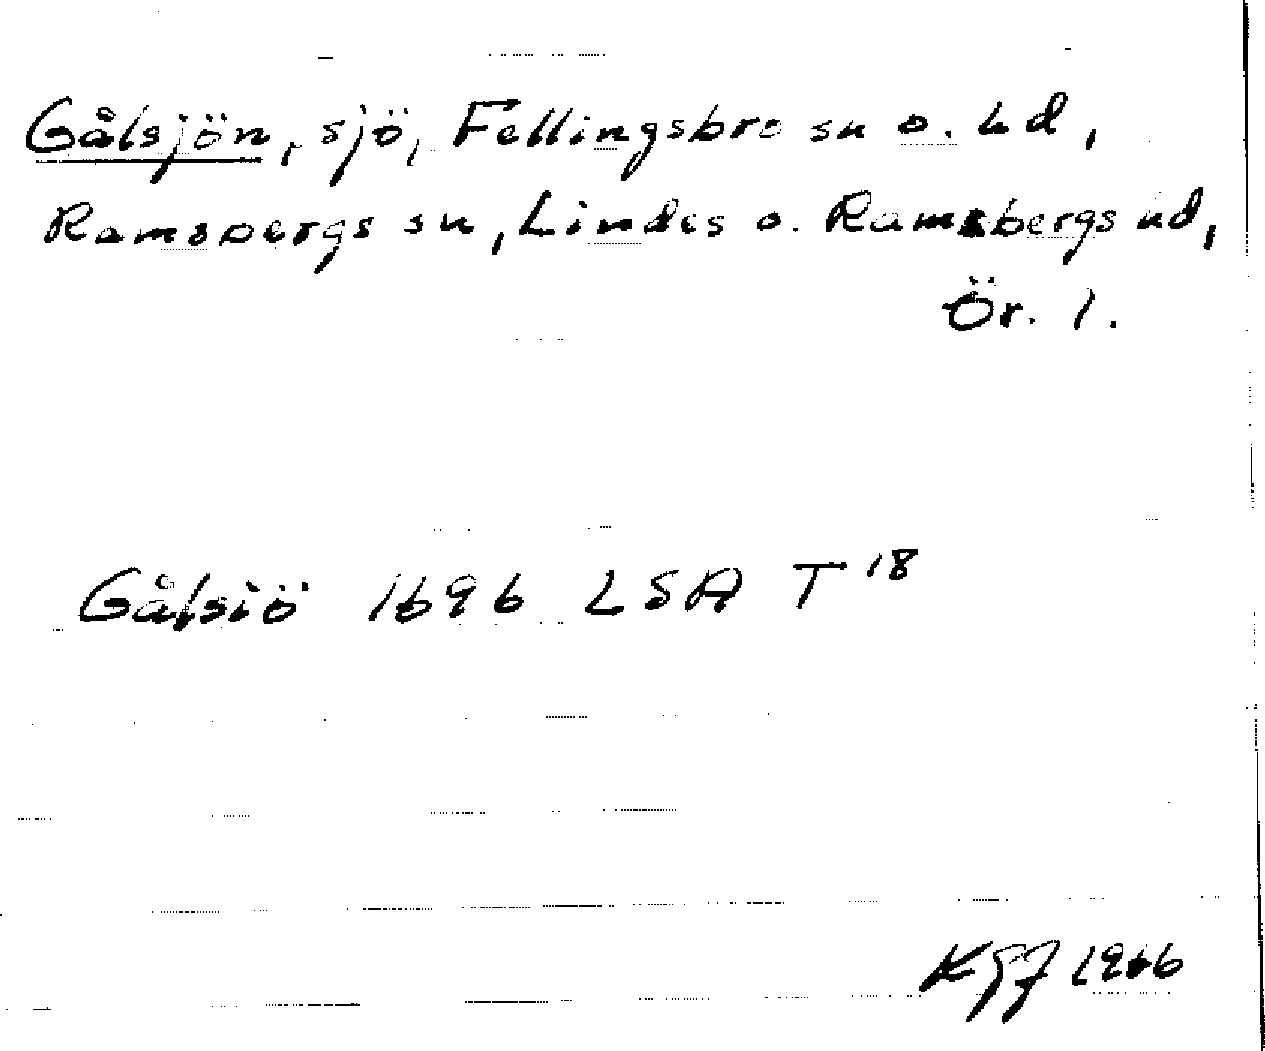 Gålsjön, sjö, Fellingsbro sn o. hd,
Ramsbergs sn, Lindes o. Ramsbergs hd,
Ör. l.
Gålsiö 1696 LSA T 18
1966